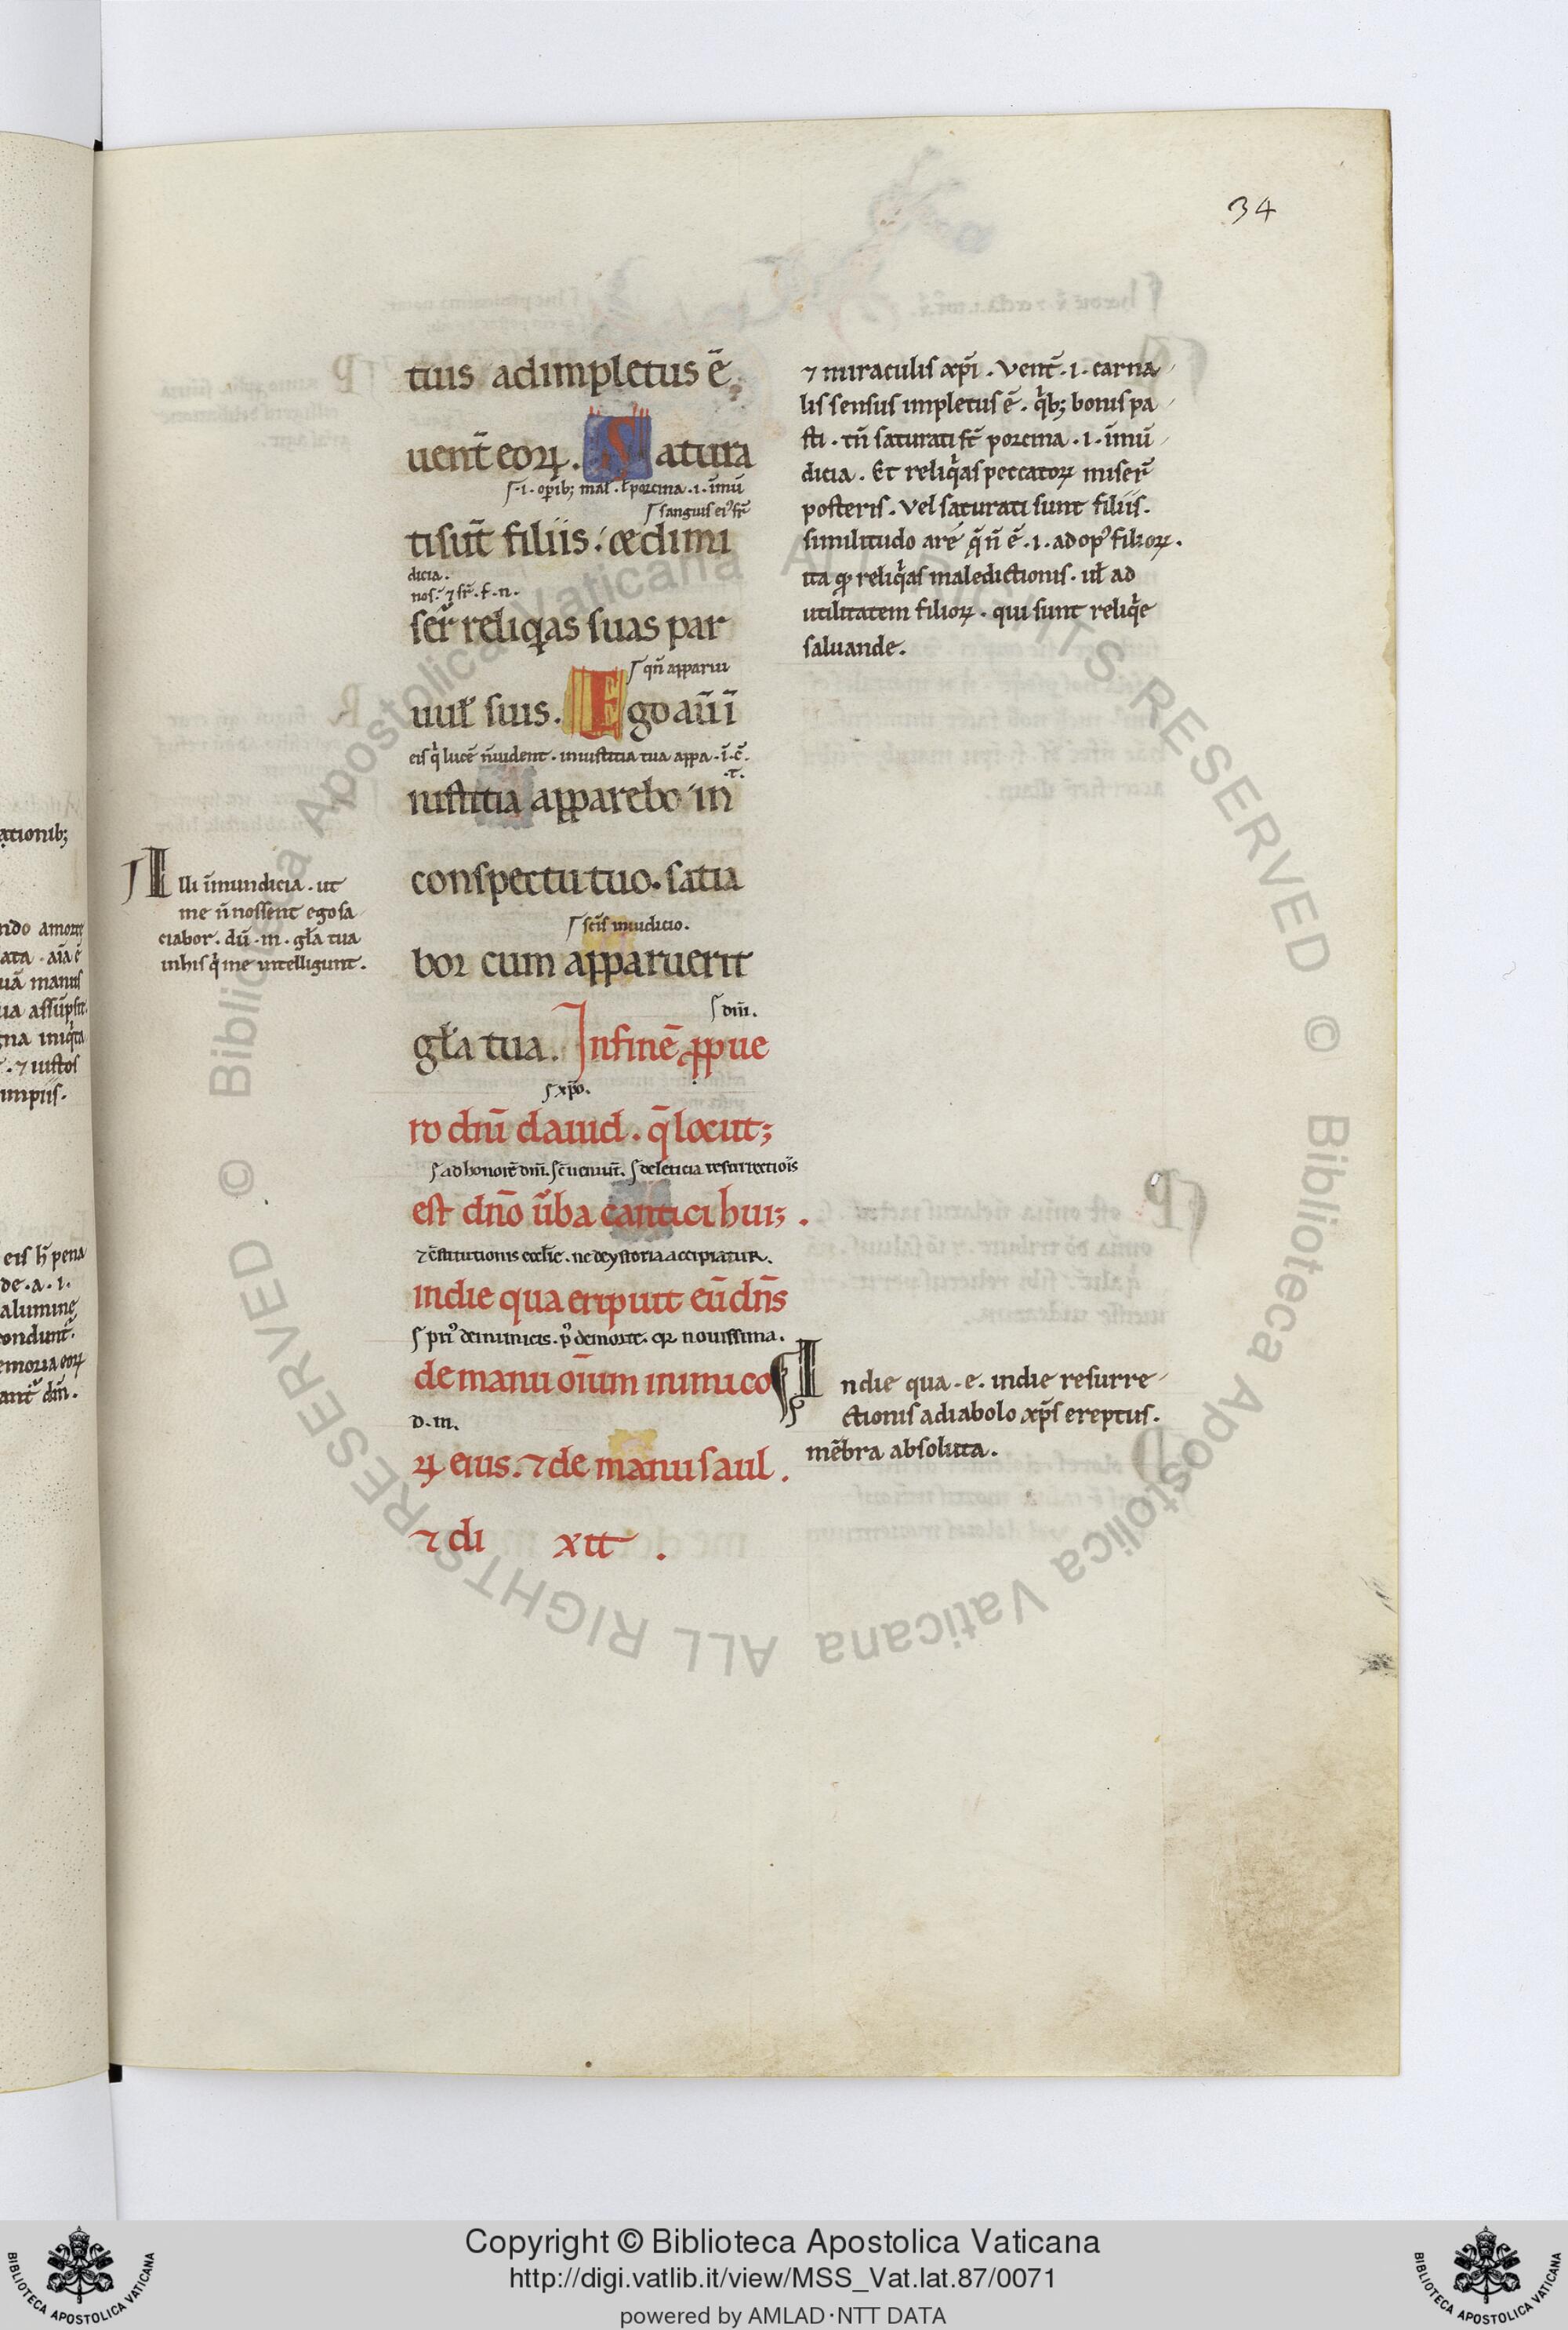 34
tuis adimpletus ē
uent̄ eoꝝ. Satura
.i. oꝑib; mal̄. ł porcina .i. īmū
sanguis ei᾽ sr̄
ti sūt filii s: & dimi
dicia.
nos. ⁊ sr̄. f. n.
ser̄ reliq͛as suas par
qn̄ apparui
uul̄ suis. Ego aū ī
eis q͛ lucē n̄ uident. in iustitia tua appa. ī. c̄.
.t.
iustitia apparebo in
conspectu tuo. satia
sc̄is in iudicio.
bor cum apparuerit
dn̄i.
gl̄a tua. In finē ꝓ pue
xp̄o.
ro dn̄i dauid. q̄ locut;
ad honorē dn̄i. s. c̄ueniūt. de leticia resurrectiōis
est dn̄o ūba cantici hui;.
⁊ c̄stitutionis eccl̄ie. ne de ystoria accipiatur.
in die qua eripuit eū dn̄s
pri᾽ de inimicis. p᾽ de morte. quę nouissima.
de manu oīum inimico
d. in.
ꝝ eius. ⁊ de manu saul.
⁊ di xit.
⁊ miraculis xp̄i. Vent̄ .i. carna
lis sensus impletus ē. q͛b; bonis pa
sti. tn̄ saturati st̄ porcina .i. īmū
dicia. Et reliq͛as peccatoꝝ miser̄
posteris. Vel saturati sunt filiis.
similitudo are q̄ n̄ ē .i. ad op᾽ filioꝝ.
ita ꝙ reliq͛as maledictionis. ul̄ ad
utilitatem filioꝝ. qui sunt reliq͛e
saluande.
Illi īmundicia. ut
me n̄ nossent ego sa
ciabor. dū .m. gl̄a tua
in his q͛ me intelligunt.
In die qua .e. in die resurre
ctionis a diabolo xp̄s ereptus.
mēbra absoluta.
ationib;
ndo amore
ata. aīa ē
uā manus
ua assūpsit
gna iniq͛ta
. ⁊ iustos
impiis.
eis h̄ pena
de .a. i.
a lumine
ondunt̄.
emoria eoꝝ
ant̄ dm̄.
© Biblioteca Apostolica Vaticana ALL RIGHTS RESERVED © Biblioteca Apostolica Vaticana ALL RIGHTS RESERVED
Copyright © Biblioteca Apostolica Vaticana
http://digi.vatlib.it/view/MSS_Vat.lat.87/0071
powered by AMLAD·NTT DATA
BIBLIOTECA APOSTOLICA VATICANA
BIBLIOTECA APOSTOLICA VATICANA